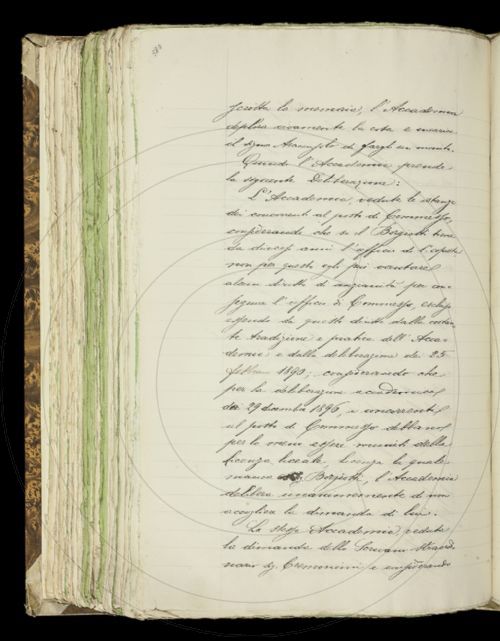 scritta la memoria, l'Accademia
deplora vivamente la cosa e incarica
il signor di fargli un monito.
Quindi l'Accademia prende
la seguente Deliberazione:
L'Accademia, vedute le istanze
dei concorrenti al posto di Commesso,
considerando che se il Borgiotti tiene
da dieci anni l'officio di
non per questo egli può vantare
alcun diritto di anzianità per con-
seguire l'officio di Commesso,
essendo da questo diritto dalla costan-
te tradizione e pratica dell'Acca-
demia e dalla deliberazione del 25
febbraio 1890; considerando che
per la deliberazione accademica
del 29 dicembre 1896, i concorrenti
al posto di Commesso debbono
per lo meno esser muniti della
licenza liceale, licenza la quale
manca al Borgiotti, l'Accademia
delibera unanimemente di non
accogliere la domanda di lui.
La stessa Accademia, veduta
la domanda dello Scrivano straordi-
nario Sig. Cremoncini e considerando